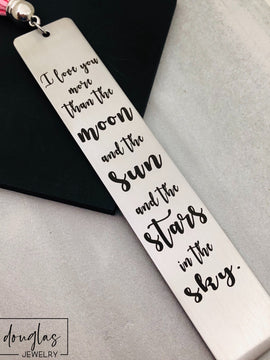 I love you
more
than the
moon
and the
sun
and the
stars
in the
sky.
douglas
JEWELRY